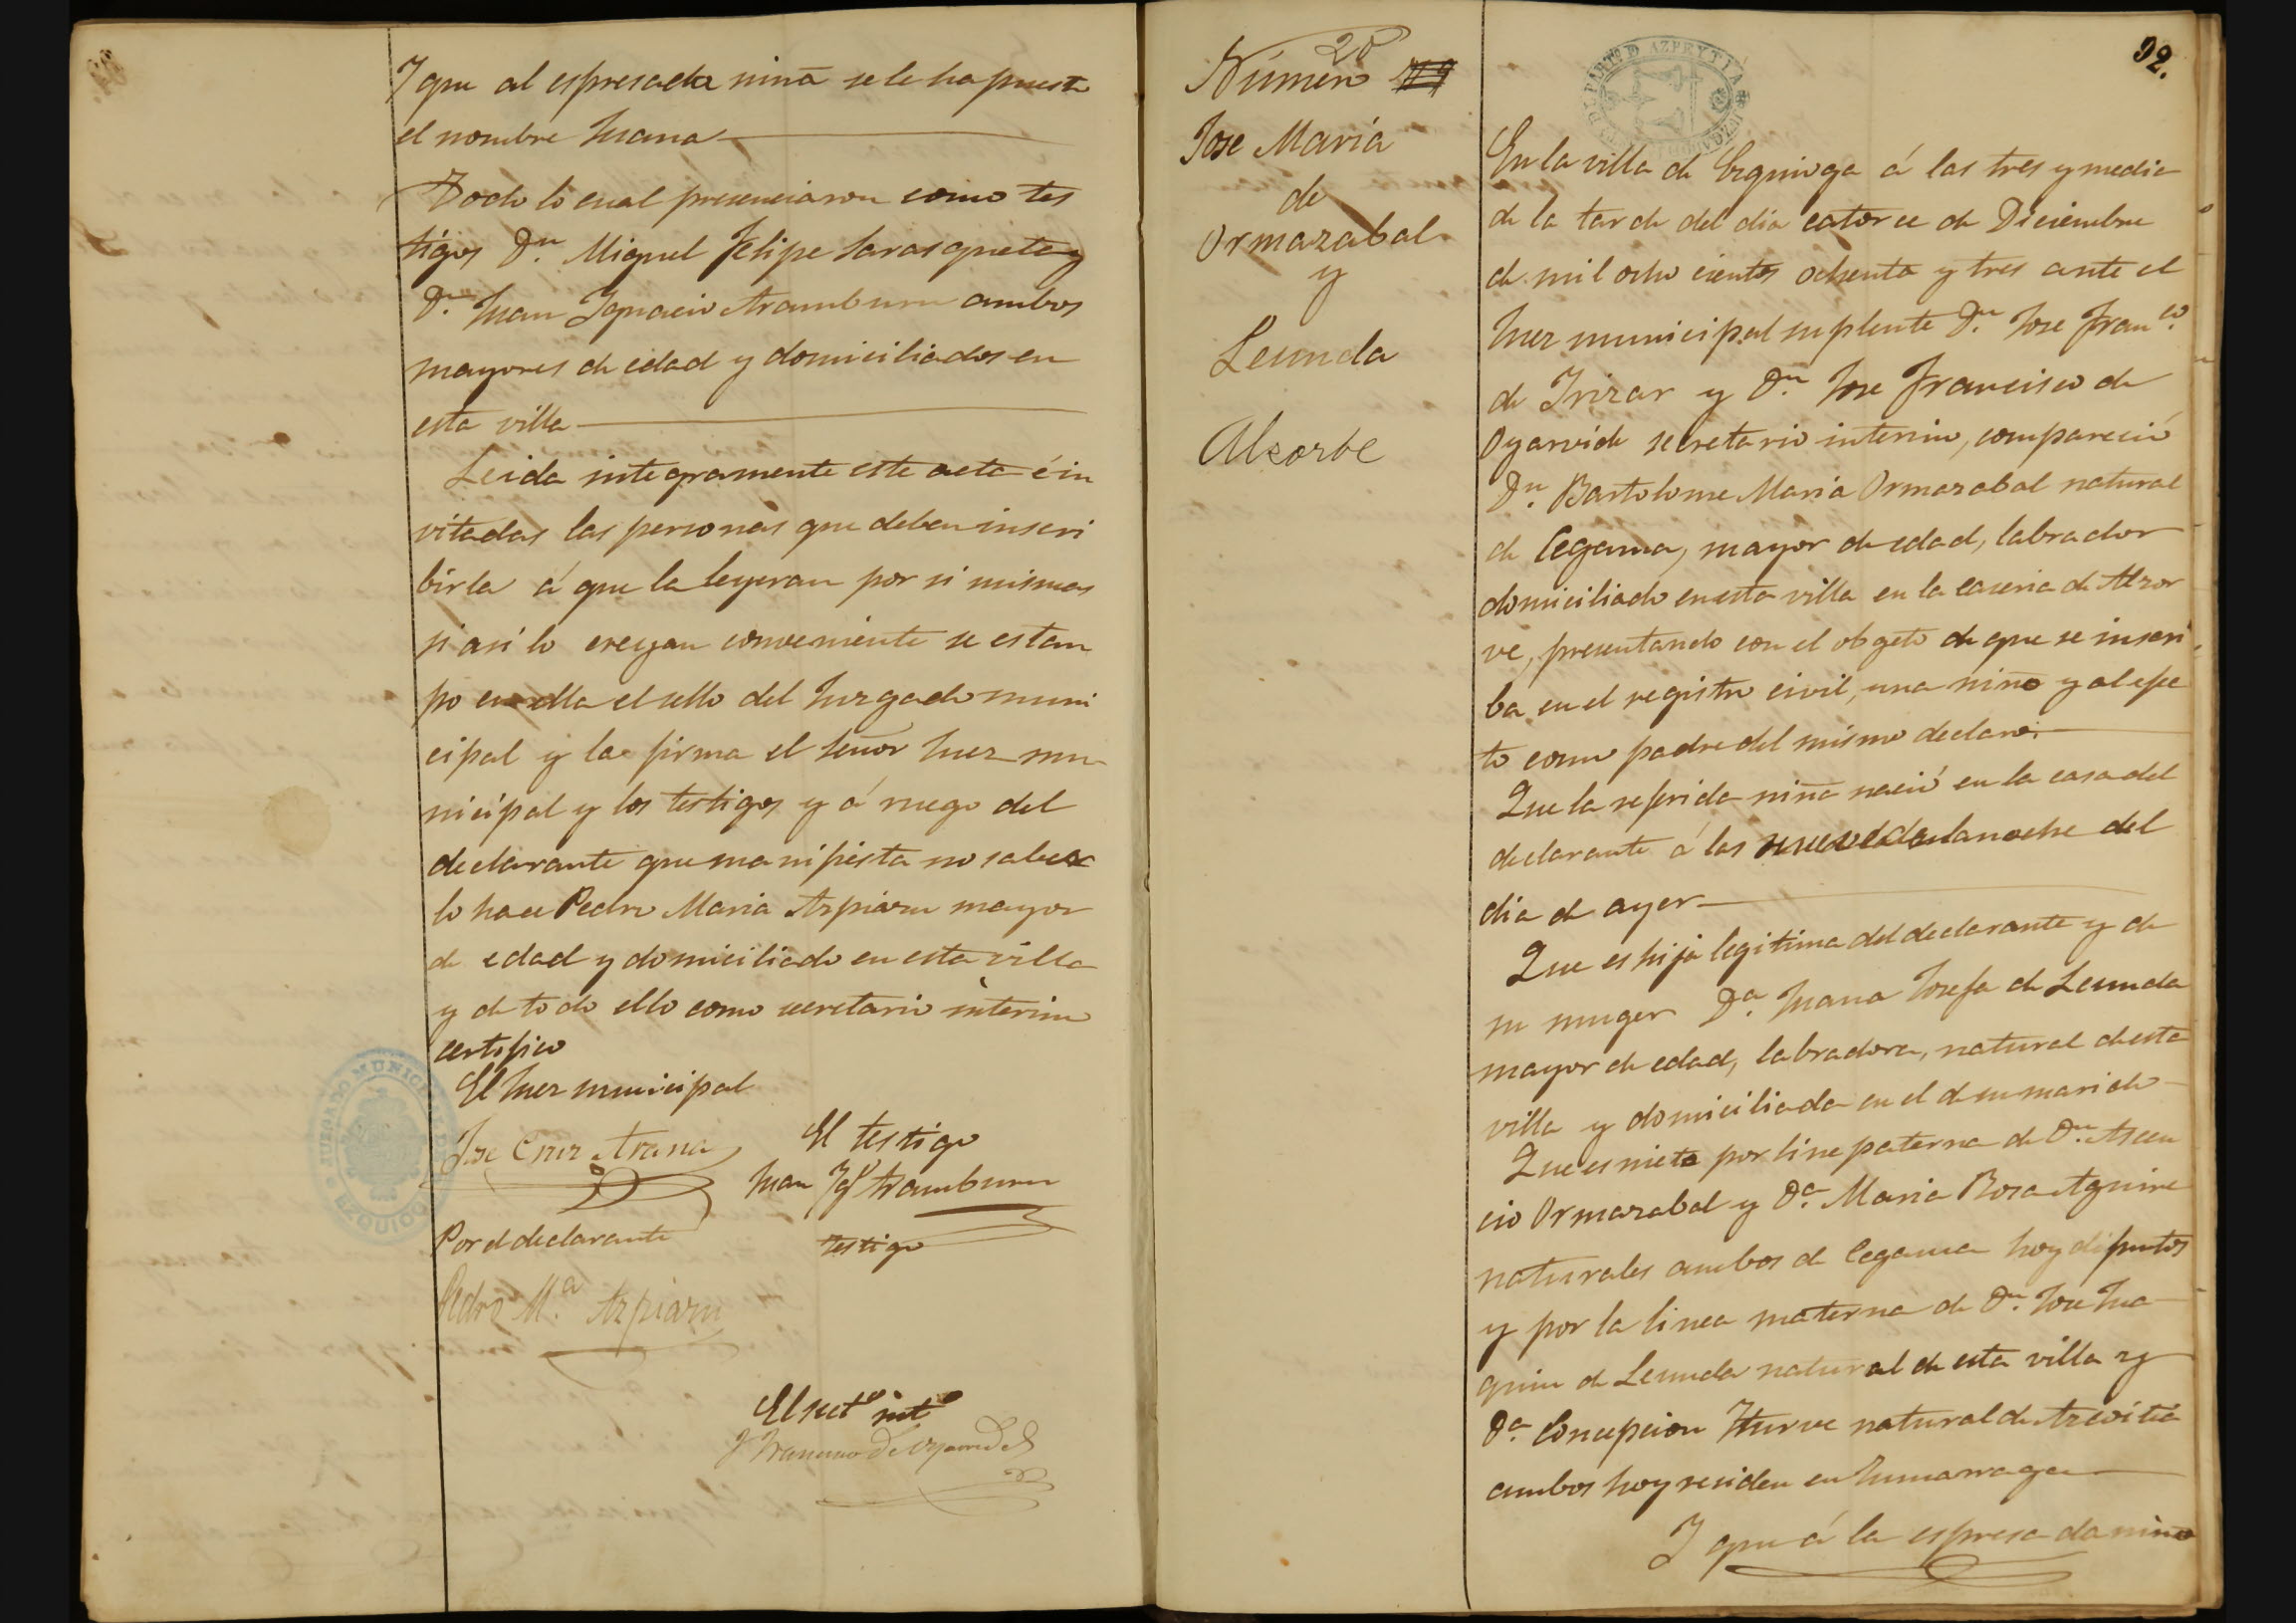 Y que al espresada niña se le ha puesto
el nombre Juana
Todo lo cual presenciaron como tes
tigos Dn. Miguel Felipe Sarasquete y
Dn. Juan Ignacio Aramburu ambos
mayores de edad y domiciliados en
esta villa
Leida integramente este acta é in
vitadas las personas que deben inscri
birla á que la leyeran por si mismas
si asi lo creyan conveniente se estam
po en ella el sello del Juzgado muni
cipal y la firma el Señor Juez mu
nicipal y los testigos y á ruego del
declarante que manifiesta no saber
lo hace Pedro Maria Azpiazu mayor
de edad y domiciliado en esta villa
y de todo ello como secretario interino
certifico
El Juez municipal
Jose Cruz Arana
El testigo
Juan Igo Aramburu
Por el declarante
testigo
Pedro Ma. Azpiazu
El sect.o int.o
J Francisco de Oyarvide
JUZGADO MUNICIPAL DE EZQUIOGA
92.
PARTo. D AZPEYTIA
Número 20
Jose María
de
Ormazabal
y
Leunda
Alzorbe
En la villa de Ezquioga á las tres y media
de la tarde del dia catorce de Diciembre
de mil ocho cientos ochenta y tres ante el
Juez municipal suplente Dn. Jose Franco.
de Irizar y Dn. Jose Francisco de
Oyarvide secretario interino, compareció
Dn. Bartolome Maria Ormazabal natural
de Cegama, mayor de edad, labrador
domiciliado en esta villa en la caseria de Alzor
ve, presentando con el obgeto de que se inscri
ba en el registro civil, una niño y al efec
to como padre del mismo declaró.
Que la referida niña nació en la casa del
declarante á las nueve de la noche del
dia de ayer
Que es hija legitima del declarante y de
su muger Da. Juana Josefa de Leunda
mayor de edad, labradora, natural de esta
villa y domiciliada en el de su marido
Que es nieto por line paterna de Dn. Ascen
cio Ormazabal y Da. Maria Rosa Aguirre
naturales ambos de Cegama hoy difuntos
y por la linea materna de Dn. Jose Joa
quin de Leunda natural de esta villa y
Da. Concepcion Iturve natural de Azcoitia
ambos hoy residen en Zumarraga
Y que á la espresada niño